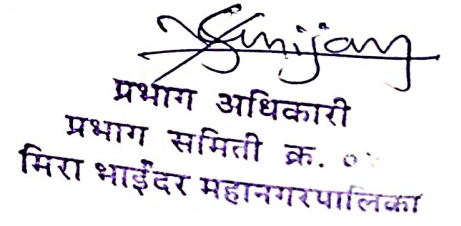 प्रभाग अधिकारी
प्रभाग समिती क्र.
मिरा भाईंदर महानगरपालिका